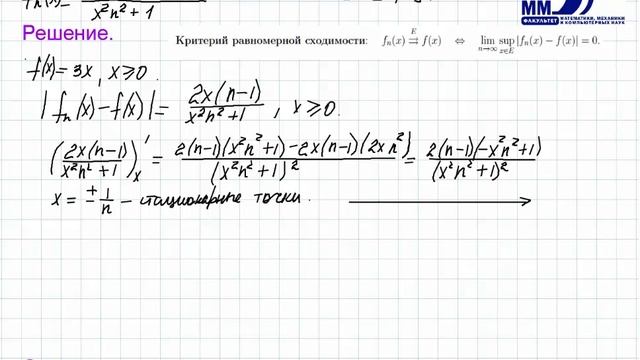 x²n²+1
ММ
ФАКУЛЬТЕТ МАТЕМАТИКИ, МЕХАНИКИ И КОМПЬЮТЕРНЫХ НАУК
Решение.
Критерий равномерной сходимости: fₙ(x) ⇉ᴱ f(x) ⇔ lim n→∞ sup x∈E |fₙ(x) − f(x)| = 0.
f(x) = 3x, x ≥ 0.
|fₙ(x) − f(x)| = 2x(n−1)/(x²n²+1), x ≥ 0.
(2x(n−1)/(x²n²+1))'ₓ = (2(n−1)(x²n²+1) − 2x(n−1)(2xn²))/(x²n²+1)² = 2(n−1)(−x²n²+1)/(x²n²+1)²
x = ±1/n – стационарные точки.